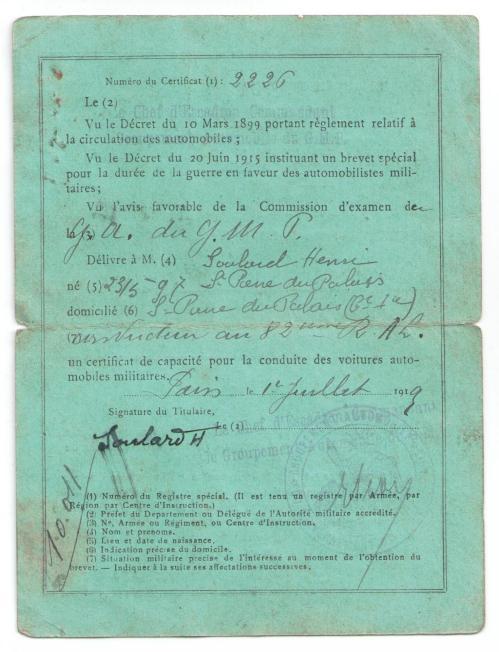 Numéro du Certificat (1) : 2226
Le (2)
Chef d'Escadron Commandant
Vu le Décret du 10 Mars 1899 portant règlement relatif à
la circulation des automobiles ;
Vu le Décret du 20 Juin 1915 instituant un brevet spécial
pour la durée de la guerre en faveur des automobilistes mili-
taires ;
Vu l'avis favorable de la Commission d'examen de
la (3) G. A. du G. M. P.
Délivre à M. (4) Soulard Henri
né (5) 23/5 97 St Pierre du Palais
domicilié (6) St Pierre du Palais
(7) conducteur au 82ème R. A. L.
un certificat de capacité pour la conduite des voitures auto-
mobiles militaires.
Paris le 1er Juillet 1919
Signature du Titulaire,
Le (2)
Soulard H
10.011
(1) Numéro du Registre spécial. (Il est tenu un registre par Armée, par
Région par Centre d'Instruction.)
(2) Préfet du Departement ou Délégué de l'Autorité militaire accrédité.
(3) No, Armée ou Régiment, ou Centre d'Instruction.
(4) Nom et prenoms.
(5) Lieu et date de naissance.
(6) Indication précise du domicile.
(7) Situation militaire precise de l'intéresse au moment de l'obtention du
brevet. — Indiquer à la suite ses affectations successives.